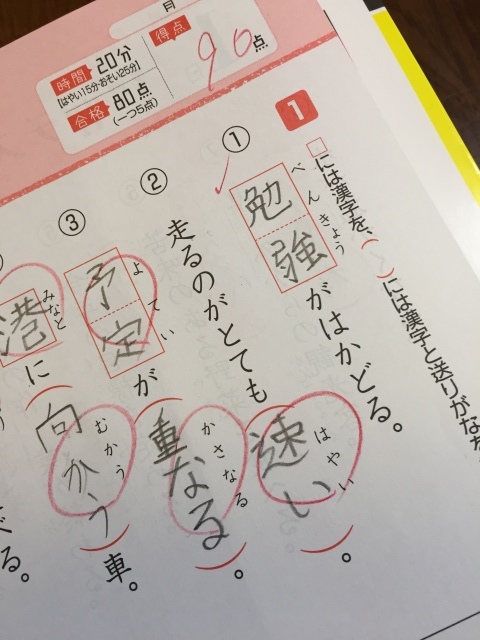 月
時間 20分
【はやい15分・おそい25分】
合格 80点
(一つ5点)
得点
90点
1
□には漢字を、( )には漢字と送りがなを
① 勉強がはかどる。
べんきょう
② 走るのがとても(速い)。
はやい
③ 予定が(重なる)。
よてい
かさなる
港に(向かう)車。
みなと
むかう
る。